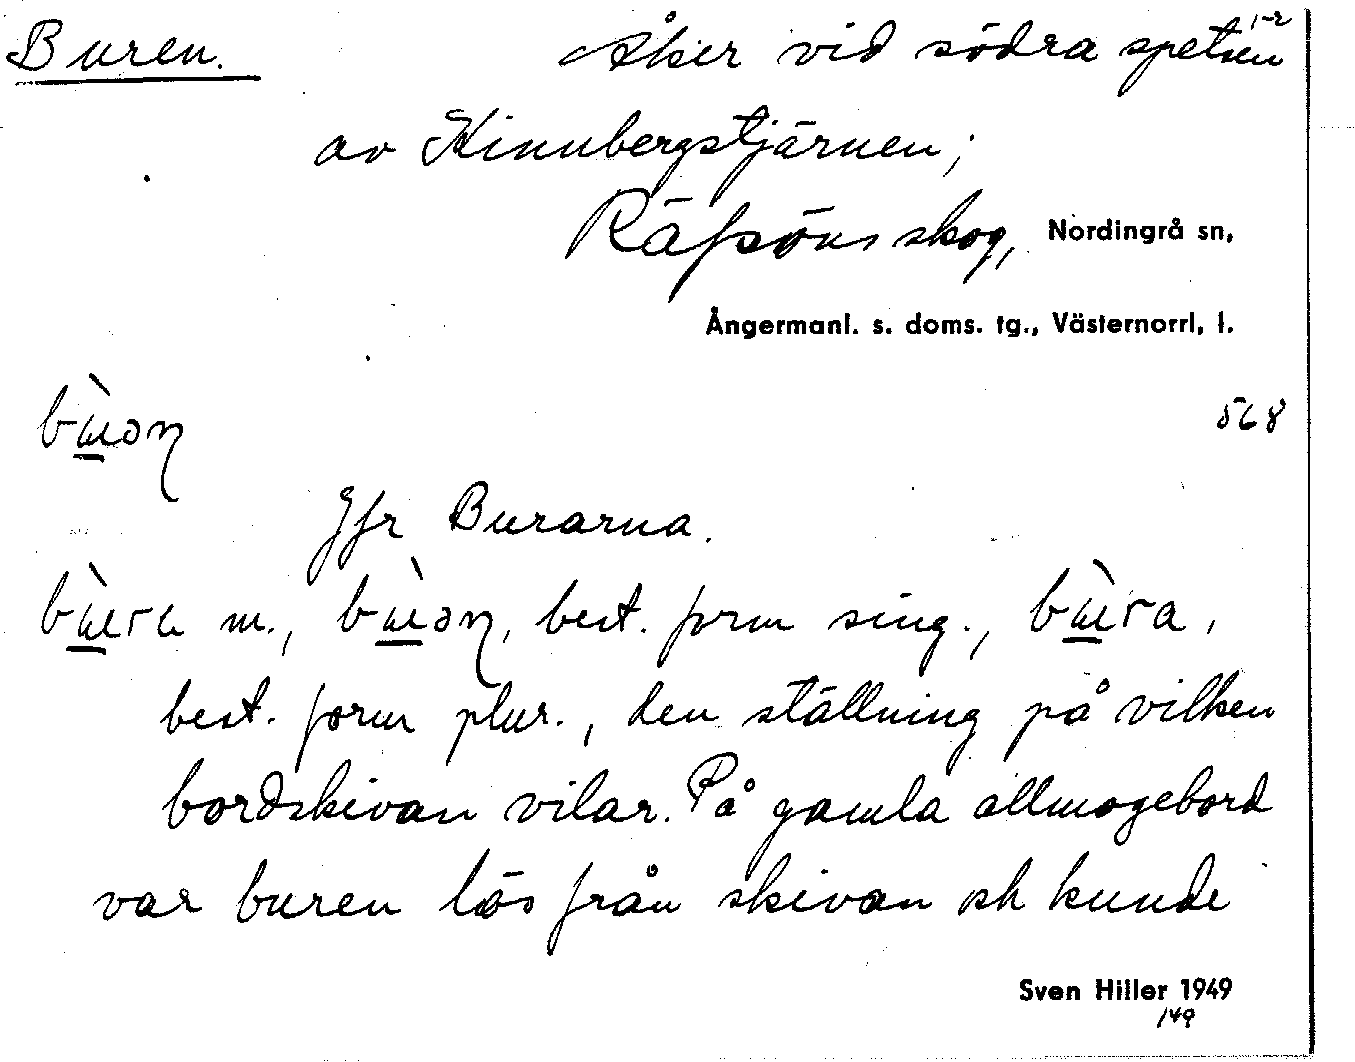 Buren. Åker vid södra spetsen 1-2
av Kinnbergstjärnen;
Räfsöns skog, Nordingrå sn,
Ångermanl. s. doms. tg., Västernorrl. l.
568
Jfr Burarna.
m., best. form sing.,
best. form plur., den ställning på vilken
bordskivan vilar. På gamla allmogebord
var buren lös från skivan och kunde
Sven Hiller 1949
149